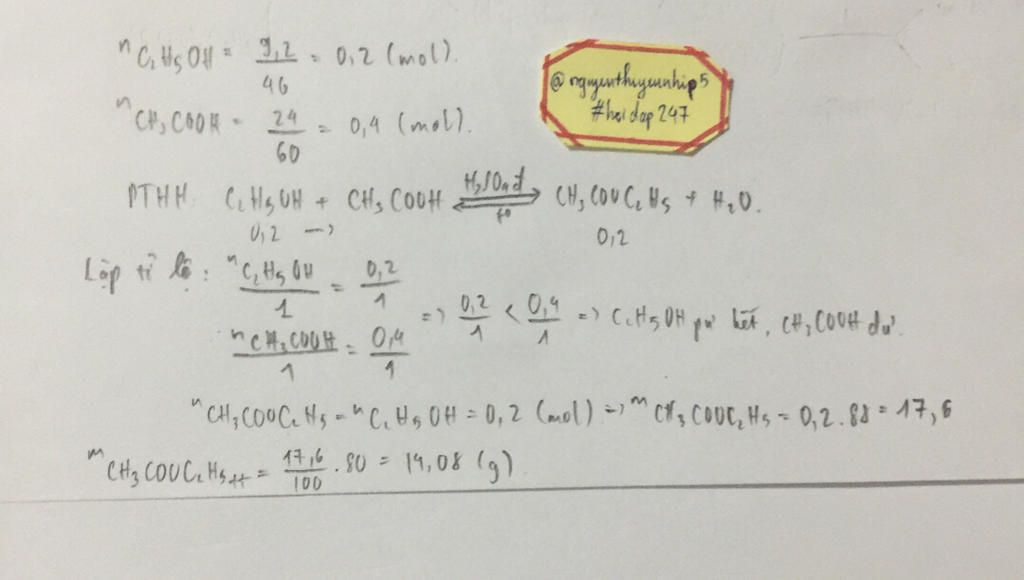 nC₂H₅OH = 9,2/46 = 0,2 (mol).
nCH₃COOH = 24/60 = 0,4 (mol).
@nguyenthuyeunhip5
#hoidap247
PTHH: C₂H₅OH + CH₃COOH ⇌ (H₂SO₄đ, t⁰) CH₃COOC₂H₅ + H₂O.
0,2 → 0,2
Lập tỉ lệ: nC₂H₅OH/1 = 0,2/1
nCH₃COOH/1 = 0,4/1
=> 0,2/1 < 0,4/1 => C₂H₅OH pư hết, CH₃COOH dư.
nCH₃COOC₂H₅ = nC₂H₅OH = 0,2 (mol) => mCH₃COOC₂H₅ = 0,2.88 = 17,6
mCH₃COOC₂H₅tt = 17,6/100 . 80 = 14,08 (g)